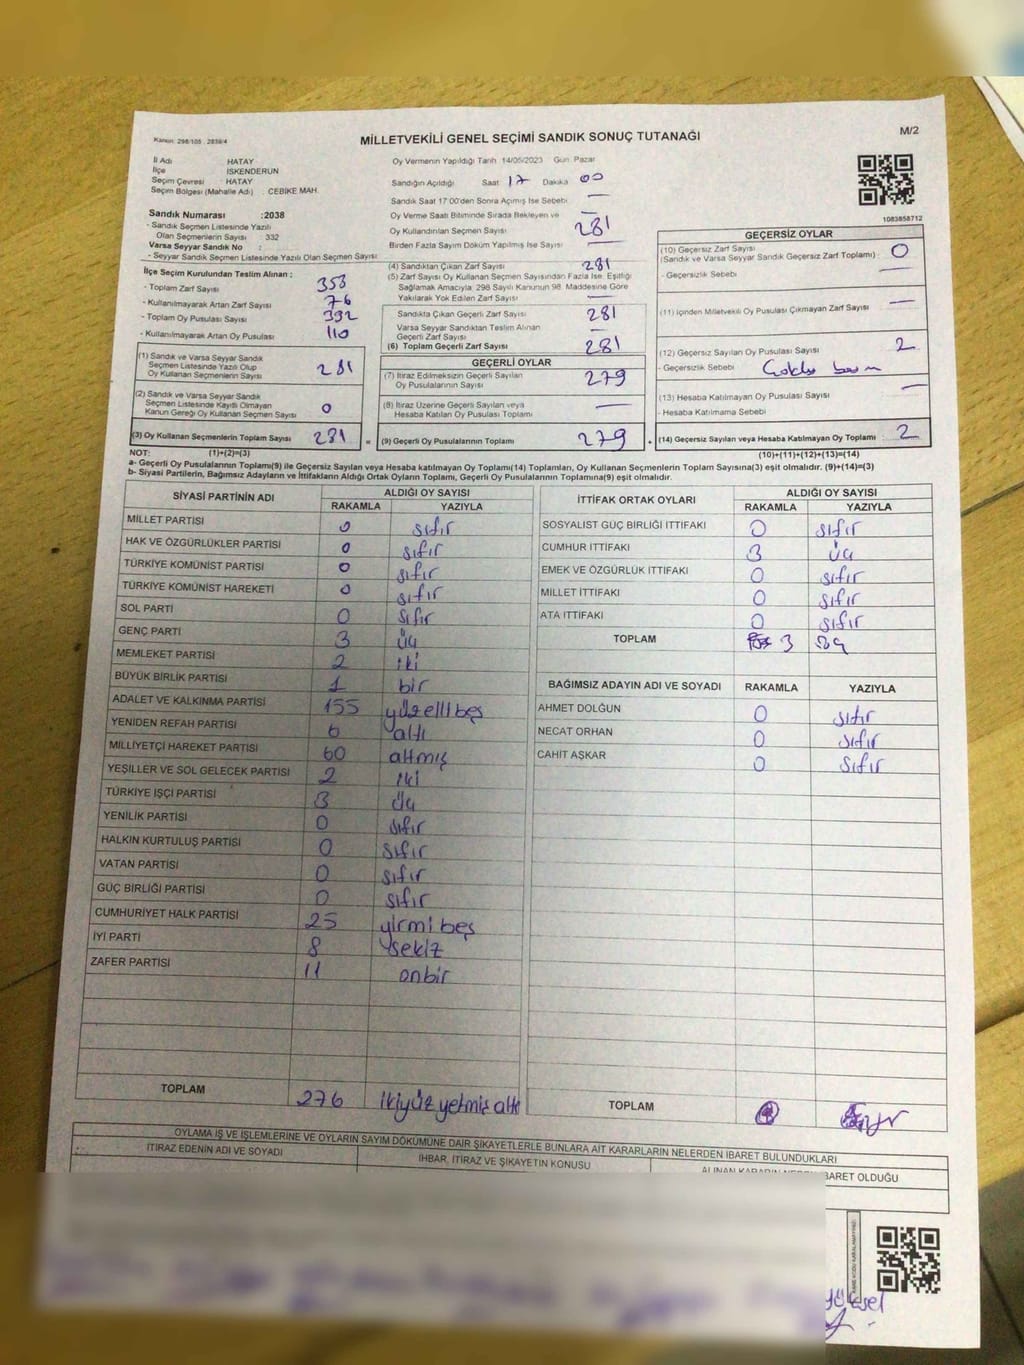 Kanun: 298/105, 2839/4
MİLLETVEKİLİ GENEL SEÇİMİ SANDIK SONUÇ TUTANAĞI
M/2
İl Adı HATAY
İlçe İSKENDERUN
Seçim Çevresi HATAY
Seçim Bölgesi (Mahalle Adı) CEBİKE MAH.
Sandık Numarası :2038
- Sandık Seçmen Listesinde Yazılı
Olan Seçmenlerin Sayısı : 332
Varsa Seyyar Sandık No :
- Seyyar Sandık Listesinde Yazılı Olan Seçmen Sayısı
Oy Vermenin Yapıldığı Tarih 14/05/2023 Gün Pazar
Sandığın Açıldığı Saat 17 Dakika 00
Sandık Saat 17:00'den Sonra Açımış İse Sebebi
Oy Verme Saati Bitiminde Sırada Bekleyen ve
Oy Kullandırılan Seçmen Sayısı 281
Birden Fazla Sayım Döküm Yapılmış İse Sayısı
1083858712
İlçe Seçim Kurulundan Teslim Alınan :
- Toplam Zarf Sayısı 353
- Kullanılmayarak Artan Zarf Sayısı 76
- Toplam Oy Pusulası Sayısı 392
- Kullanılmayarak Artan Oy Pusulası 110
(1) Sandık ve Varsa Seyyar Sandık
Seçmen Listesinde Yazılı Olup
Oy Kullanan Seçmenlerin Sayısı 281
(2) Sandık ve Varsa Seyyar Sandık
Seçmen Listesinde Kayıtlı Olmayan
Kanun Gereği Oy Kullanan Seçmen Sayısı 0
(3) Oy Kullanan Seçmenlerin Toplam Sayısı 281
(4) Sandıktan Çıkan Zarf Sayısı 281
(5) Zarf Sayısı Oy Kullanan Seçmen Sayısından Fazla İse, Eşitliği
Sağlamak Amacıyla; 298 Sayılı Kanunun 98. Maddesine Göre
Yakılarak Yok Edilen Zarf Sayısı
Sandıkta Çıkan Geçerli Zarf Sayısı 281
Varsa Seyyar Sandıktan Teslim Alınan
Geçerli Zarf Sayısı
(6) Toplam Geçerli Zarf Sayısı 281
GEÇERLİ OYLAR
(7) İtiraz Edilmeksizin Geçerli Sayılan
Oy Pusulalarının Sayısı 279
(8) İtiraz Üzerine Geçerli Sayılan veya
Hesaba Katılan Oy Pusulası Toplamı
= (9) Geçerli Oy Pusulalarının Toplamı 279
GEÇERSİZ OYLAR
(10) Geçersiz Zarf Sayısı
(Sandık ve Varsa Seyyar Sandık Geçersiz Zarf Toplamı) : 0
- Geçersizlik Sebebi
(11) İçinden Milletvekili Oy Pusulası Çıkmayan Zarf Sayısı
(12) Geçersiz Sayılan Oy Pusulası Sayısı 2
- Geçersizlik Sebebi
(13) Hesaba Katılmayan Oy Pusulası Sayısı
- Hesaba Katılmama Sebebi
+ (14) Geçersiz Sayılan veya Hesaba Katılmayan Oy Toplamı : 2
NOT: (1)+(2)=(3) (10)+(11)+(12)+(13)=(14)
a- Geçerli Oy Pusulalarının Toplamı(9) ile Geçersiz Sayılan veya Hesaba katılmayan Oy Toplamı(14) Toplamları, Oy Kullanan Seçmenlerin Toplam Sayısına(3) eşit olmalıdır. (9)+(14)=(3)
b- Siyasi Partilerin, Bağımsız Adayların ve İttifakların Aldığı Ortak Oyların Toplamı, Geçerli Oy Pusulalarının Toplamına(9) eşit olmalıdır.
SİYASİ PARTİNİN ADI ALDIĞI OY SAYISI
RAKAMLA YAZIYLA
MİLLET PARTİSİ 0 sıfır
HAK VE ÖZGÜRLÜKLER PARTİSİ 0 sıfır
TÜRKİYE KOMÜNİST PARTİSİ 0 sıfır
TÜRKİYE KOMÜNİST HAREKETİ 0 sıfır
SOL PARTİ 0 sıfır
GENÇ PARTİ 3 üç
MEMLEKET PARTİSİ 2 iki
BÜYÜK BİRLİK PARTİSİ 1 bir
ADALET VE KALKINMA PARTİSİ 155 yüzellibeş
YENİDEN REFAH PARTİSİ 6 altı
MİLLİYETÇİ HAREKET PARTİSİ 60 altmış
YEŞİLLER VE SOL GELECEK PARTİSİ 2 iki
TÜRKİYE İŞÇİ PARTİSİ 3 üç
YENİLİK PARTİSİ 0 sıfır
HALKIN KURTULUŞ PARTİSİ 0 sıfır
VATAN PARTİSİ 0 sıfır
GÜÇ BİRLİĞİ PARTİSİ 0 sıfır
CUMHURİYET HALK PARTİSİ 25 yirmi beş
İYİ PARTİ 8 sekiz
ZAFER PARTİSİ 11 onbir
TOPLAM 276 ikiyüzyetmiş altı
İTTİFAK ORTAK OYLARI ALDIĞI OY SAYISI
RAKAMLA YAZIYLA
SOSYALİST GÜÇ BİRLİĞİ İTTİFAKI 0 sıfır
CUMHUR İTTİFAKI 3 üç
EMEK VE ÖZGÜRLÜK İTTİFAKI 0 sıfır
MİLLET İTTİFAKI 0 sıfır
ATA İTTİFAKI 0 sıfır
TOPLAM 3
BAĞIMSIZ ADAYIN ADI VE SOYADI RAKAMLA YAZIYLA
AHMET DOLĞUN 0 sıfır
NECAT ORHAN 0 sıfır
CAHİT AŞKAR 0 sıfır
TOPLAM
OYLAMA İŞ VE İŞLEMLERİNE VE OYLARIN SAYIM DÖKÜMÜNE DAİR ŞİKAYETLERLE BUNLARA AİT KARARLARIN NELERDEN İBARET BULUNDUKLARI
İTİRAZ EDENİN ADI VE SOYADI
İHBAR, İTİRAZ VE ŞİKAYETİN KONUSU
ALINAN KARARIN NEDEN İBARET OLDUĞU